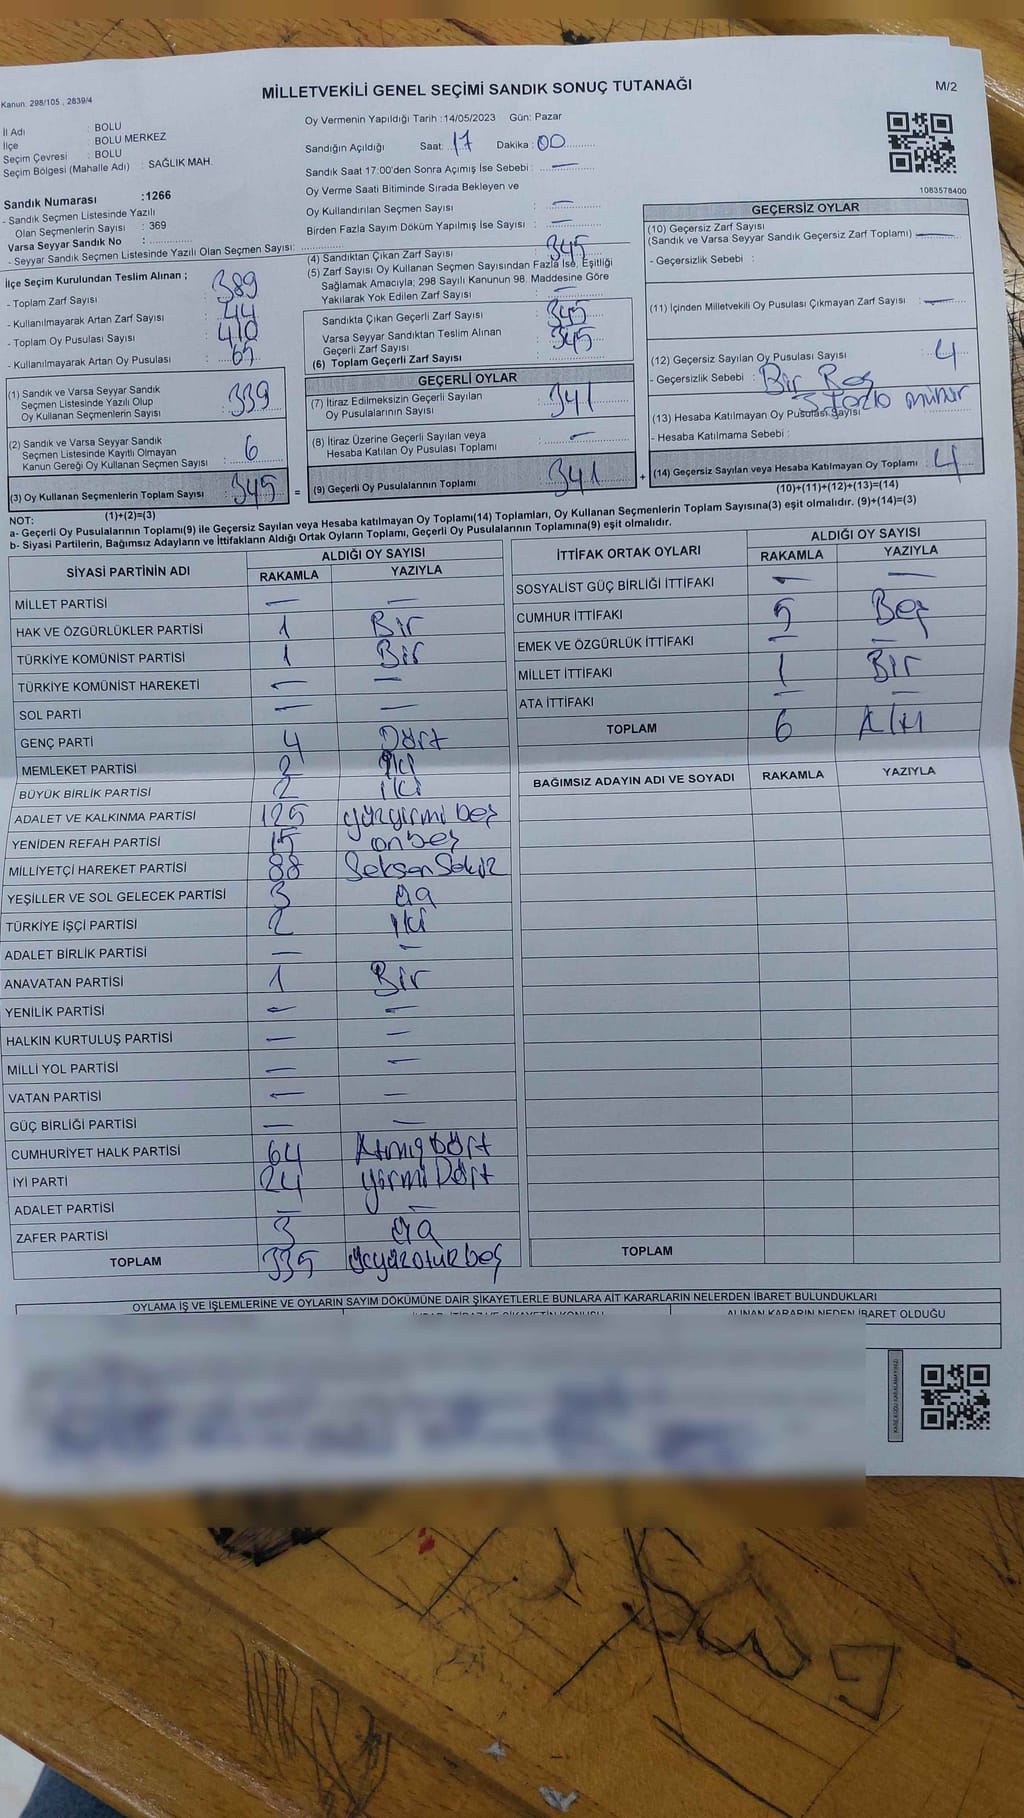 MİLLETVEKİLİ GENEL SEÇİMİ SANDIK SONUÇ TUTANAĞI
M/2
Kanun: 298/105 , 2839/4
İl Adı : BOLU
İlçe : BOLU MERKEZ
Seçim Çevresi : BOLU
Seçim Bölgesi (Mahalle Adı) : SAĞLIK MAH.
Sandık Numarası :1266
- Sandık Seçmen Listesinde Yazılı
Olan Seçmenlerin Sayısı : 369
Varsa Seyyar Sandık No :
- Seyyar Seçmen Listesinde Yazılı Olan Seçmen Sayısı:
Oy Vermenin Yapıldığı Tarih :14/05/2023 Gün: Pazar
Sandığın Açıldığı Saat: 17 Dakika : 00
Sandık Saat 17:00'den Sonra Açımış İse Sebebi : —
Oy Verme Saati Bitiminde Sırada Bekleyen ve
Oy Kullandırılan Seçmen Sayısı : —
Birden Fazla Sayım Döküm Yapılmış İse Sayısı : —
1083578400
İlçe Seçim Kurulundan Teslim Alınan ;
- Toplam Zarf Sayısı : 389
- Kullanılmayarak Artan Zarf Sayısı : 44
- Toplam Oy Pusulası Sayısı : 410
- Kullanılmayarak Artan Oy Pusulası : 65
(1) Sandık ve Varsa Seyyar Sandık
Seçmen Listesinde Yazılı Olup
Oy Kullanan Seçmenlerin Sayısı : 339
(2) Sandık ve Varsa Seyyar Sandık
Seçmen Listesinde Kayıtlı Olmayan
Kanun Gereği Oy Kullanan Seçmen Sayısı : 6
(3) Oy Kullanan Seçmenlerin Toplam Sayısı : 345
(1)+(2)=(3)
(4) Sandıktan Çıkan Zarf Sayısı : 345
(5) Zarf Sayısı Oy Kullanan Seçmen Sayısından Fazla İse, Eşitliği
Sağlamak Amacıyla; 298 Sayılı Kanunun 98. Maddesine Göre
Yakılarak Yok Edilen Zarf Sayısı : —
Sandıkta Çıkan Geçerli Zarf Sayısı : 345
Varsa Seyyar Sandıktan Teslim Alınan
Geçerli Zarf Sayısı : 345
(6) Toplam Geçerli Zarf Sayısı :
GEÇERLİ OYLAR
(7) İtiraz Edilmeksizin Geçerli Sayılan
Oy Pusulalarının Sayısı : 341
(8) İtiraz Üzerine Geçerli Sayılan veya
Hesaba Katılan Oy Pusulası Toplamı : —
= (9) Geçerli Oy Pusulalarının Toplamı : 341
GEÇERSİZ OYLAR
(10) Geçersiz Zarf Sayısı
(Sandık ve Varsa Seyyar Sandık Geçersiz Zarf Toplamı) —
- Geçersizlik Sebebi :
(11) İçinden Milletvekili Oy Pusulası Çıkmayan Zarf Sayısı : —
(12) Geçersiz Sayılan Oy Pusulası Sayısı : 4
- Geçersizlik Sebebi : Bir Boş
3 Fazla mühür
(13) Hesaba Katılmayan Oy Pusulası Sayısı
- Hesaba Katılmama Sebebi :
+ (14) Geçersiz Sayılan veya Hesaba Katılmayan Oy Toplamı : 4
(10)+(11)+(12)+(13)=(14)
NOT:
a- Geçerli Oy Pusulalarının Toplamı(9) ile Geçersiz Sayılan veya Hesaba katılmayan Oy Toplamı(14) Toplamları, Oy Kullanan Seçmenlerin Toplam Sayısına(3) eşit olmalıdır. (9)+(14)=(3)
b- Siyasi Partilerin, Bağımsız Adayların ve İttifakların Aldığı Ortak Oyların Toplamı, Geçerli Oy Pusulalarının Toplamına(9) eşit olmalıdır.
SİYASİ PARTİNİN ADI ALDIĞI OY SAYISI
RAKAMLA YAZIYLA
MİLLET PARTİSİ — —
HAK VE ÖZGÜRLÜKLER PARTİSİ 1 Bir
TÜRKİYE KOMÜNİST PARTİSİ 1 Bir
TÜRKİYE KOMÜNİST HAREKETİ — —
SOL PARTİ — —
GENÇ PARTİ 4 Dört
MEMLEKET PARTİSİ 2 İki
BÜYÜK BİRLİK PARTİSİ 2 İki
ADALET VE KALKINMA PARTİSİ 125 yüzyirmi beş
YENİDEN REFAH PARTİSİ 15 onbeş
MİLLİYETÇİ HAREKET PARTİSİ 88 SeksenSekiz
YEŞİLLER VE SOL GELECEK PARTİSİ 3 üç
TÜRKİYE İŞÇİ PARTİSİ 2 iki
ADALET BİRLİK PARTİSİ — —
ANAVATAN PARTİSİ 1 Bir
YENİLİK PARTİSİ — —
HALKIN KURTULUŞ PARTİSİ — —
MİLLİ YOL PARTİSİ — —
VATAN PARTİSİ — —
GÜÇ BİRLİĞİ PARTİSİ — —
CUMHURİYET HALK PARTİSİ 64 AtmışDört
İYİ PARTİ 24 yirmi Dört
ADALET PARTİSİ — —
ZAFER PARTİSİ 3 üç
TOPLAM 335 üçyüzotuzbeş
İTTİFAK ORTAK OYLARI ALDIĞI OY SAYISI
RAKAMLA YAZIYLA
SOSYALİST GÜÇ BİRLİĞİ İTTİFAKI — —
CUMHUR İTTİFAKI 5 Beş
EMEK VE ÖZGÜRLÜK İTTİFAKI — —
MİLLET İTTİFAKI 1 Bir
ATA İTTİFAKI — —
TOPLAM 6 Altı
BAĞIMSIZ ADAYIN ADI VE SOYADI RAKAMLA YAZIYLA
TOPLAM
OYLAMA İŞ VE İŞLEMLERİNE VE OYLARIN SAYIM DÖKÜMÜNE DAİR ŞİKAYETLERLE BUNLARA AİT KARARLARIN NELERDEN İBARET BULUNDUKLARI
ALINAN KARARIN NEDEN İBARET OLDUĞU